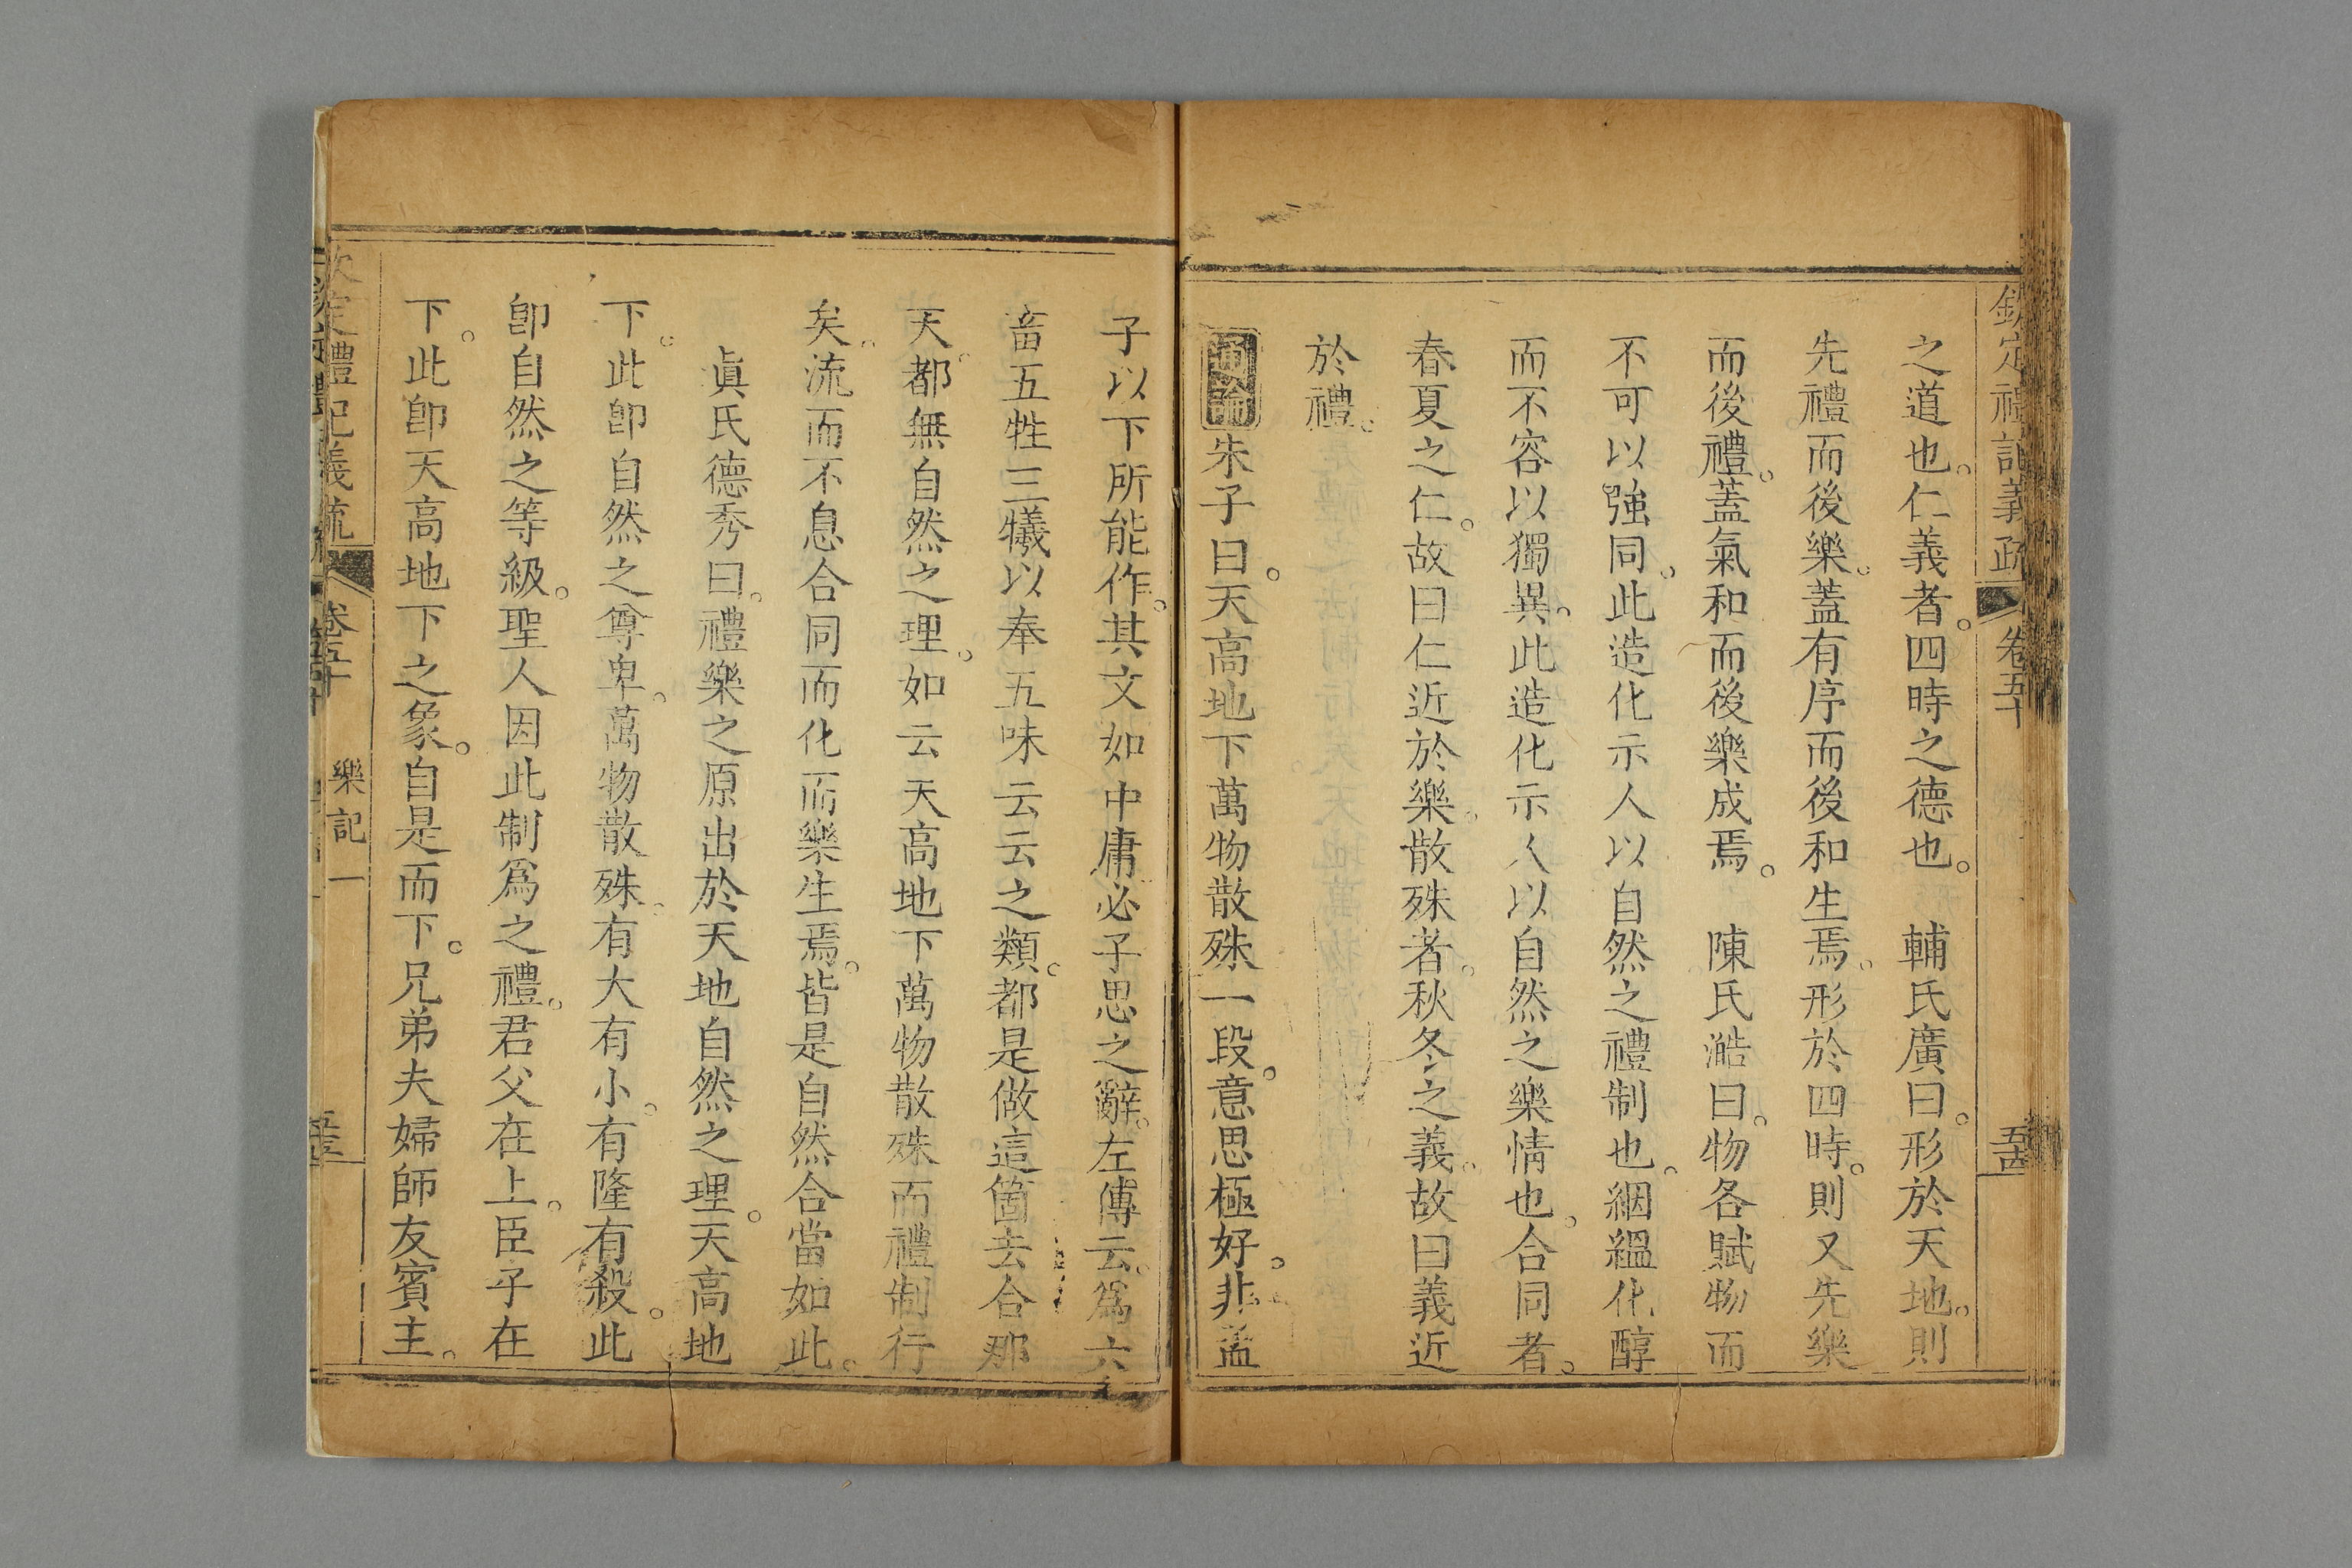 欽定禮記義疏 卷五十 五古
之道也。仁義者。四時之德也。 輔氏廣曰。形於天地。則
先禮而後樂。蓋有序而後和生焉。形於四時。則又先樂
而後禮。蓋氣和而後樂成焉。 陳氏澔曰。物各賦物而
不可以強同。此造化示人以自然之禮制也。絪縕化醇
而不容以獨異。此造化示人以自然之樂情也。合同者。
春夏之仁。故曰仁近於樂。散殊者。秋冬之義。故曰義近
於禮。
通論朱子曰。天高地下萬物散殊一段。意思極好。非孟
子以下所能作。其文如中庸必子思之辭。左傳云。爲六
畜五牲三犧以奉五味云云之類。都是做這箇去合那
天。都無自然之理。如云天高地下萬物散殊而禮制行
矣。流而不息合同而化而樂生焉。皆是自然合當如此。
眞氏德秀曰。禮樂之原出於天地自然之理。天高地
下。此卽自然之尊卑。萬物散殊。有大有小。有隆有殺。此
卽自然之等級。聖人因此制爲之禮。君父在上。臣子在
下。此卽天高地下之象。自是而下。兄弟夫婦師友賓主。
欽定禮記義疏 卷五十 樂記一